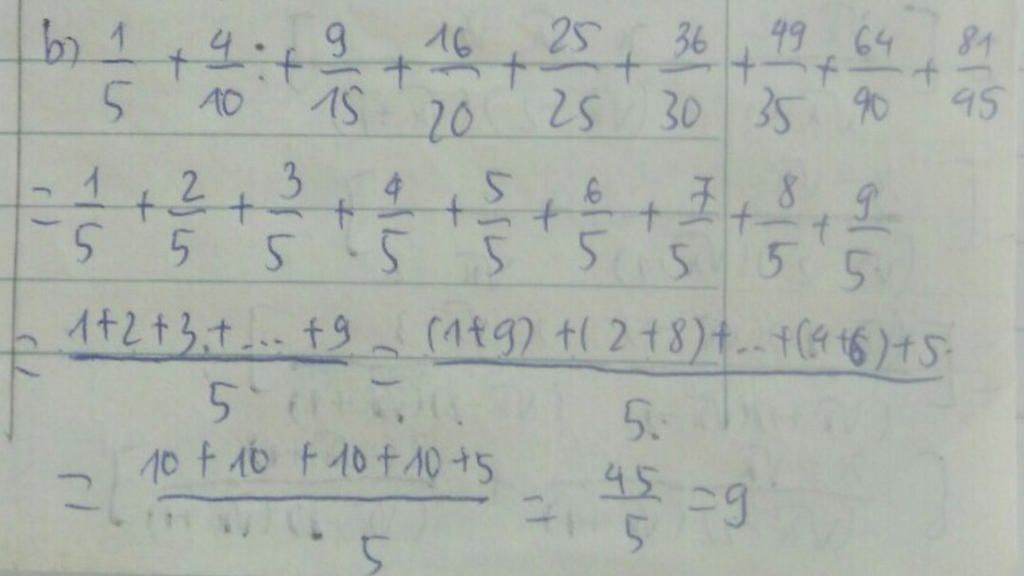 b) 1/5 + 4/10 + 9/15 + 16/20 + 25/25 + 36/30 + 49/35 + 64/40 + 81/45
= 1/5 + 2/5 + 3/5 + 4/5 + 5/5 + 6/5 + 7/5 + 8/5 + 9/5
= (1+2+3+...+9)/5 = ((1+9)+(2+8)+...+(4+6)+5)/5
= (10+10+10+10+5)/5 = 45/5 = 9